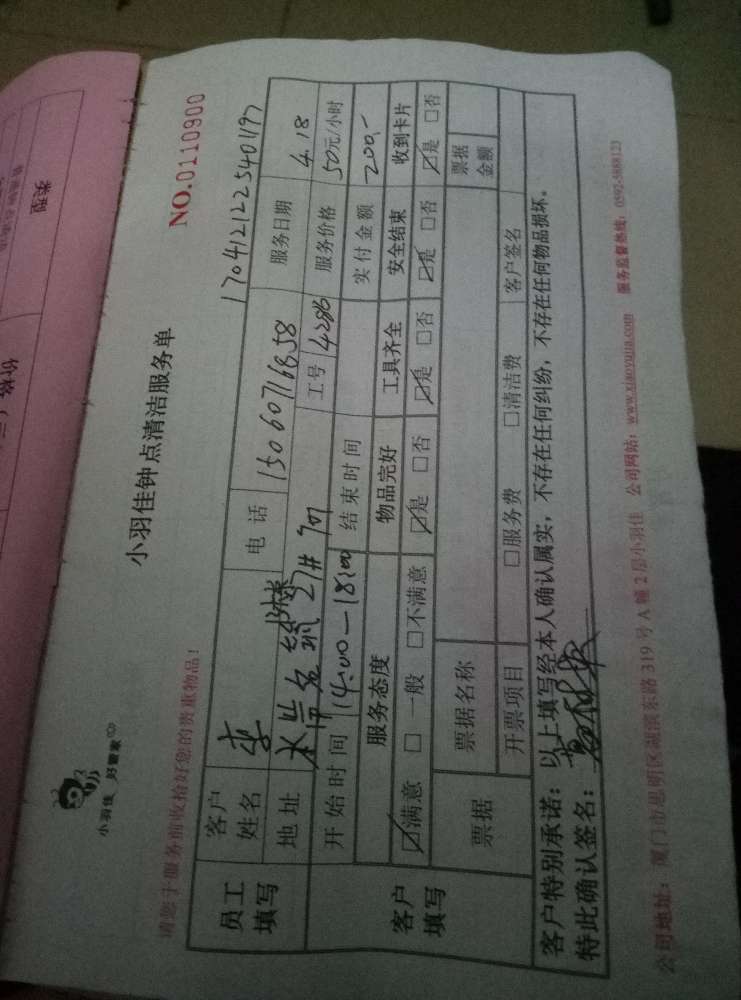 小羽佳 好管家
小羽佳钟点清洁服务单
NO.0110900
请您于服务前收拾好您的贵重物品!
170412122540197
员工填写
客户姓名 李 电话 15060716858 服务日期 4.18
地址 27# 701 工号 4286 服务价格 50元/小时
开始时间 14:00—18:00 结束时间 实付金额 200.-
客户填写
服务态度 物品完好 工具齐全 安全结束 收到卡片
☑满意 □一般 □不满意 ☑是 □否 ☑是 □否 ☑是 □否 ☑是 □否
票据 票据名称 票据金额
开票项目 □服务费 □清洁费 客户签名
客户特别承诺:以上填写经本人确认属实,不存在任何纠纷,不存在任何物品损坏。
特此确认签名:
公司地址:厦门市思明区湖滨东路319号A幢2层小羽佳 公司网站:www.xiaoyujia.com 服务监督热线:0592-5888123
类型
价格